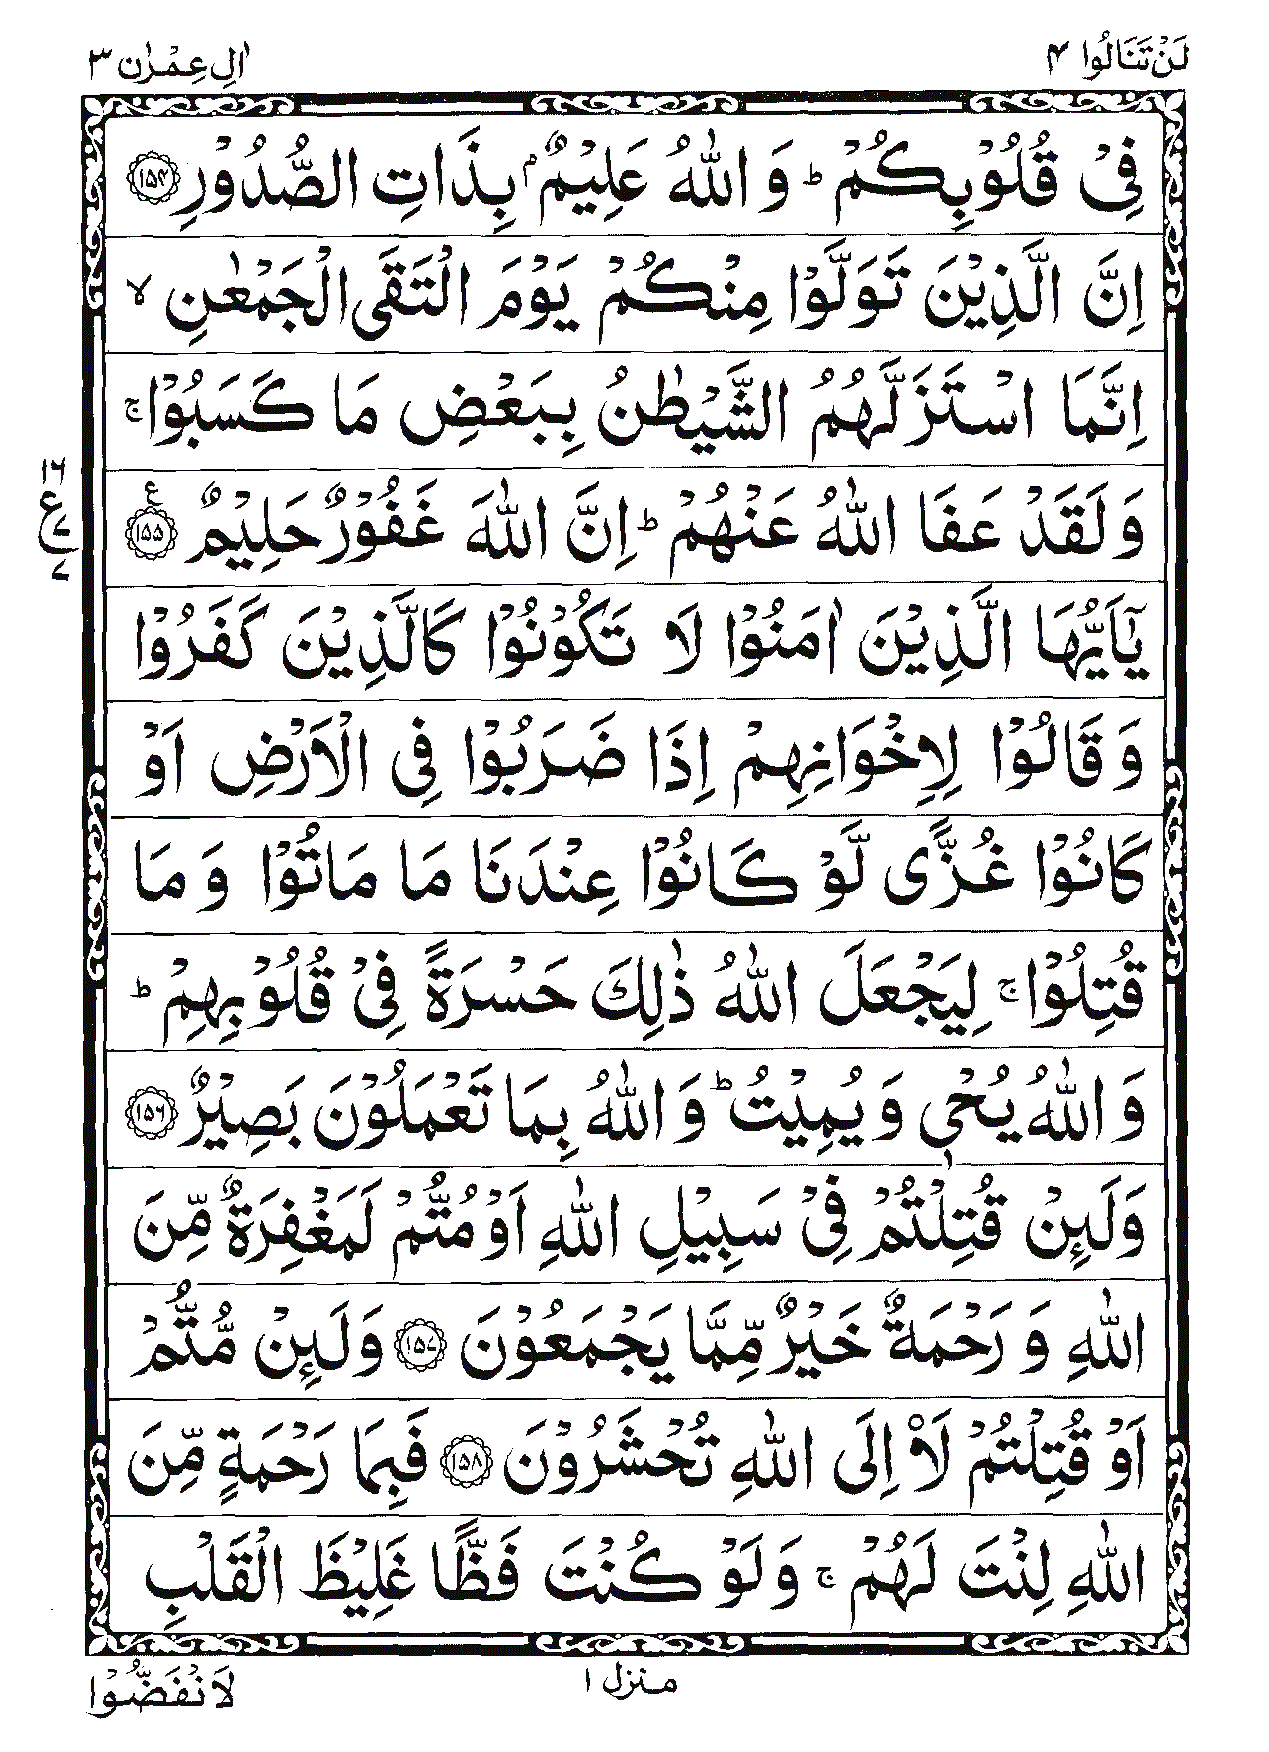 لَنْ تَنَالُوا ۴
اٰلِ عِمْرٰن ۳
فِیْ قُلُوْبِكُمْ ؕ وَ اللّٰهُ عَلِیْمٌۢ بِذَاتِ الصُّدُوْرِ ۱۵۴
اِنَّ الَّذِیْنَ تَوَلَّوْا مِنْكُمْ یَوْمَ الْتَقَی الْجَمْعٰنِ ۙ
اِنَّمَا اسْتَزَلَّهُمُ الشَّیْطٰنُ بِبَعْضِ مَا كَسَبُوْا ۚ
وَ لَقَدْ عَفَا اللّٰهُ عَنْهُمْ ؕ اِنَّ اللّٰهَ غَفُوْرٌ حَلِیْمٌ ۱۵۵ ع
۱۶
ع ۷
۷
یٰۤاَیُّهَا الَّذِیْنَ اٰمَنُوْا لَا تَكُوْنُوْا كَالَّذِیْنَ كَفَرُوْا
وَ قَالُوْا لِاِخْوَانِهِمْ اِذَا ضَرَبُوْا فِی الْاَرْضِ اَوْ
كَانُوْا غُزًّی لَّوْ كَانُوْا عِنْدَنَا مَا مَاتُوْا وَ مَا
قُتِلُوْا ۚ لِیَجْعَلَ اللّٰهُ ذٰلِكَ حَسْرَةً فِیْ قُلُوْبِهِمْ ؕ
وَ اللّٰهُ یُحْیٖ وَ یُمِیْتُ ؕ وَ اللّٰهُ بِمَا تَعْمَلُوْنَ بَصِیْرٌ ۱۵۶
وَلَىِٕنْ قُتِلْتُمْ فِیْ سَبِیْلِ اللّٰهِ اَوْ مُتُّمْ لَمَغْفِرَةٌ مِّنَ
اللّٰهِ وَ رَحْمَةٌ خَیْرٌ مِّمَّا یَجْمَعُوْنَ ۱۵۷ وَلَىِٕنْ مُّتُّمْ
اَوْ قُتِلْتُمْ لَاۡ اِلَی اللّٰهِ تُحْشَرُوْنَ ۱۵۸ فَبِمَا رَحْمَةٍ مِّنَ
اللّٰهِ لِنْتَ لَهُمْ ۚ وَ لَوْ كُنْتَ فَظًّا غَلِیْظَ الْقَلْبِ
منزل ۱
لَا نْفَضُّوْا